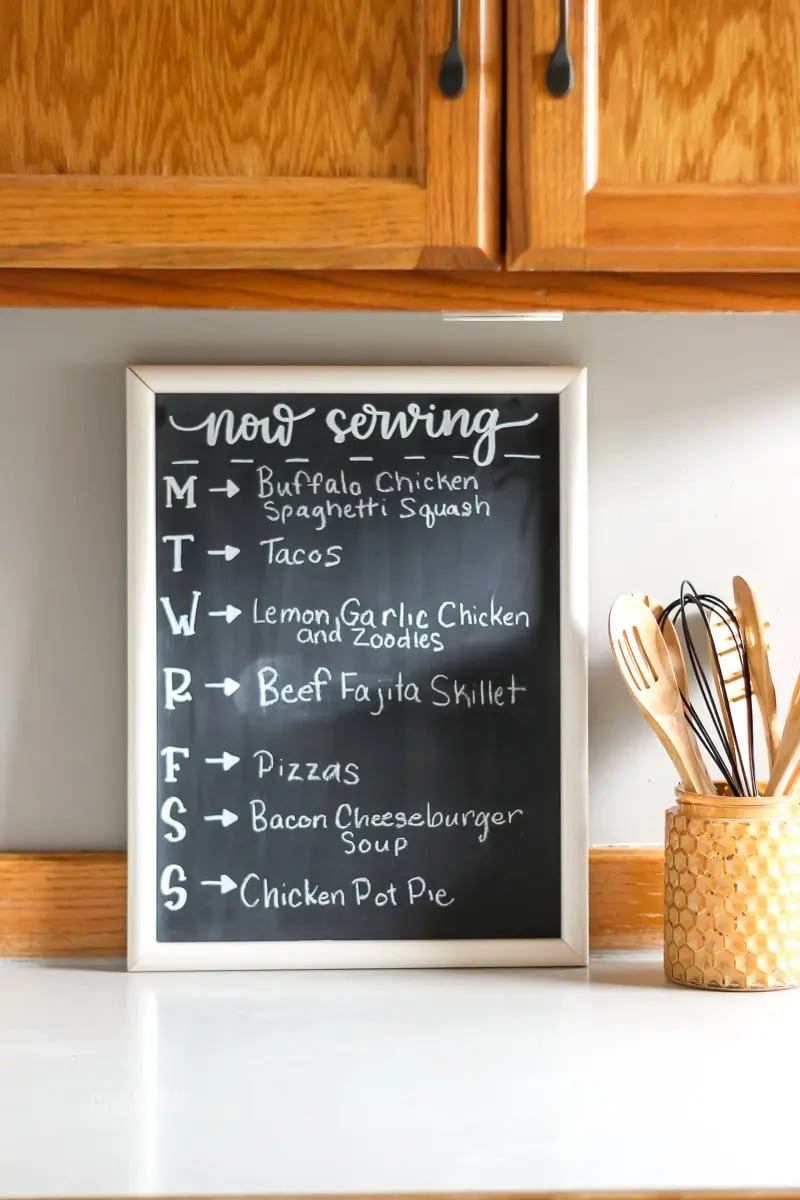 now serving
M → Buffalo Chicken
Spaghetti Squash
T → Tacos
W → Lemon, Garlic Chicken
and Zoodles
R → Beef Fajita Skillet
F → Pizzas
S → Bacon Cheeseburger
Soup
S → Chicken Pot Pie